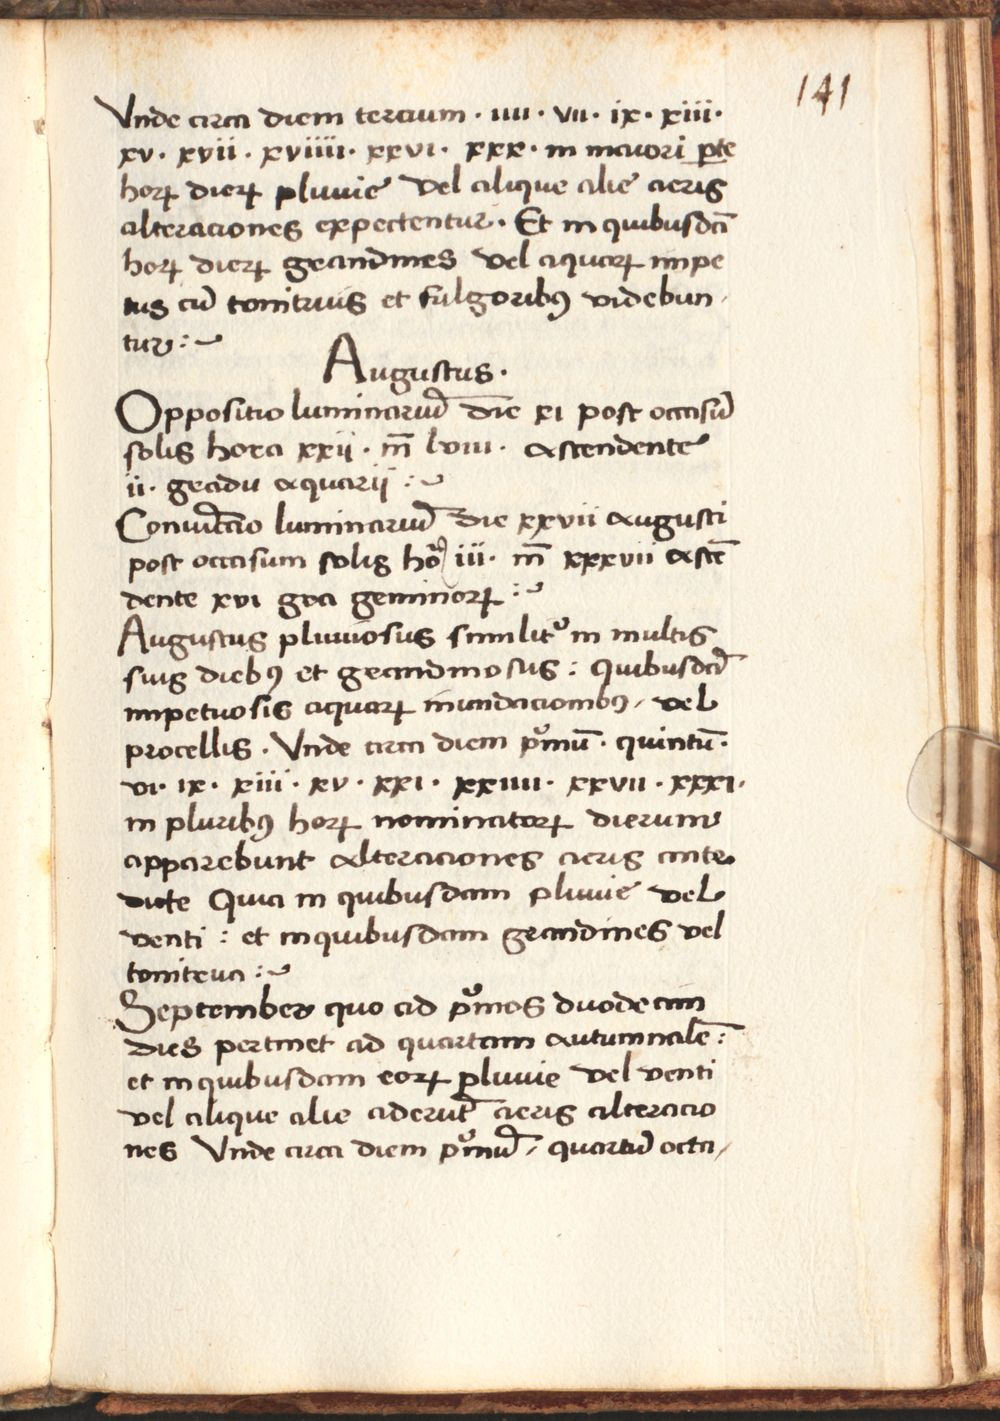 141
Vnde circa diem tercium · iiii · vii · ix · xiii ·
xv · xvii · xviiii · xxvi · xxx · in maiori ꝑte
hoꝝ dieꝝ pluuie vel alique alie aeris
alteraciones expectentur · Et in quibusdā
hoꝝ dieꝝ grandines vel aquaꝝ impe
tus cū tonitruis et fulgoribꝰ videbun /
tur :~
Augustus ·
Oppositio luminariū die xi post occasū
solis hora xxii · m̄ lviii · ascendente
ii · gradu aquarij :~
Coniūccio luminariū die xxvii augusti
post occasum solis hoͣ iii · m̄ xxxvii ascē
dente xvi gra geminoꝝ :~
Augustus pluuiosus similitͬ in multis
suis diebꝰ et grandinosus : quibusdā
impetuosis aquaꝝ inundacionibꝰ / vel
procellis · Vnde circa diem pͥmū · quintū ·
vi · ix · xiii · xv · xxi · xxiiii · xxvii · xxxi ·
in pluribꝰ hoꝝ nominatoꝝ dierum
apparebunt alteraciones aeris ante
dicte Quia in quibusdam pluuie vel
venti : et in quibusdam grandines vel
tonitrua :~
September quo ad pͥmos duodecim
dies pertinet ad quartam autumnalē :
et in quibusdam eoꝝ pluuie vel venti
vel alique alie aderūt aeris alteracio
nes Vnde circa diem pͥmū / quartū octa /